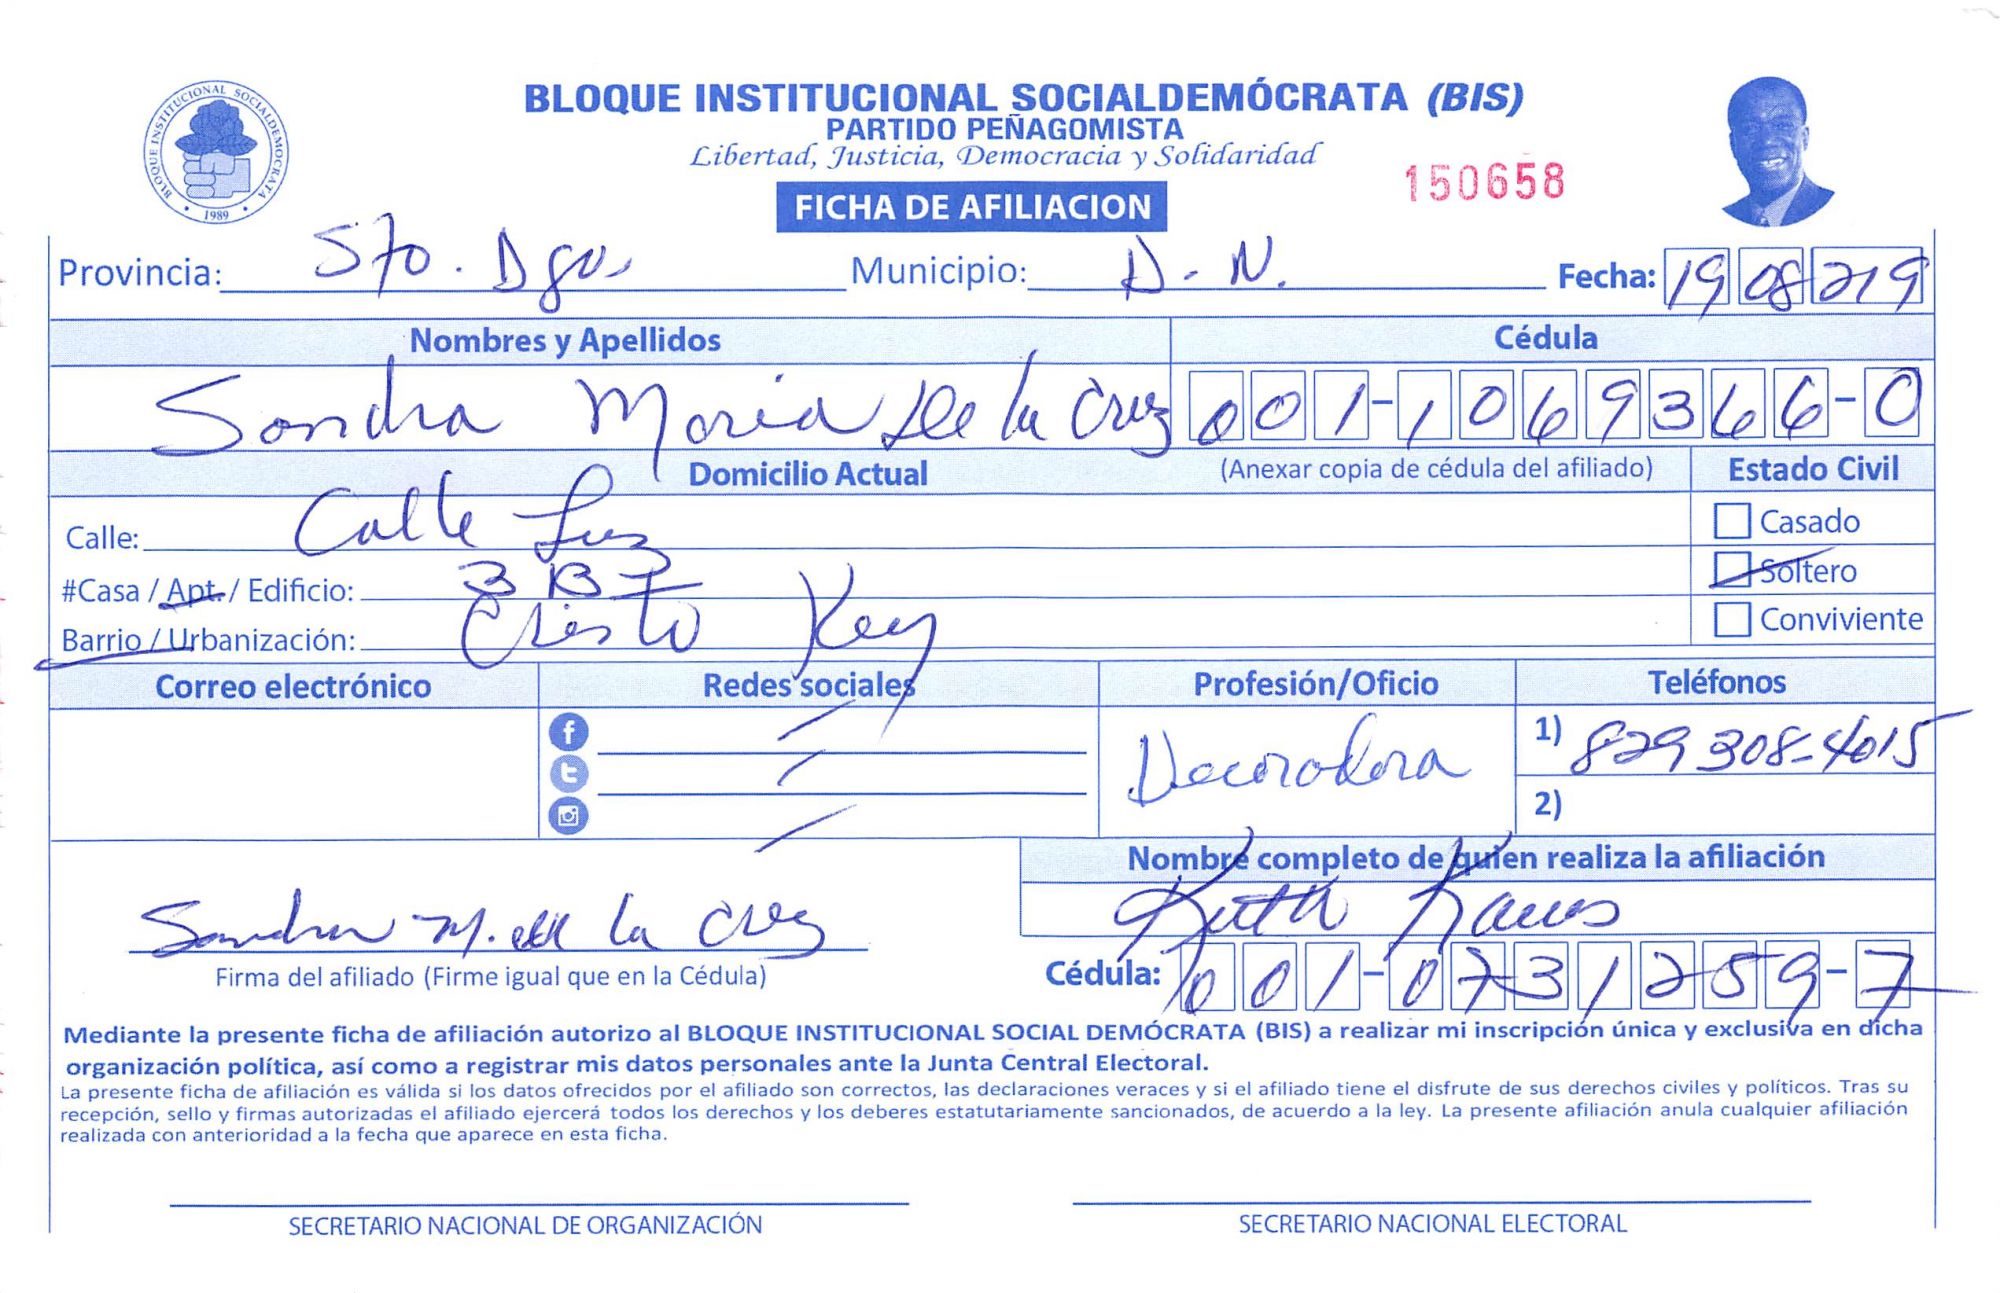 BLOQUE INSTITUCIONAL SOCIALDEMÓCRATA (BIS)
PARTIDO PEÑAGOMISTA
Libertad, Justicia, Democracia y Solidaridad
BLOQUE INSTITUCIONAL SOCIALDEMOCRATA
1989
150658
FICHA DE AFILIACION
Provincia: Sto. Dgo. Municipio: D.N. Fecha: 19 08 219
Nombres y Apellidos Cédula
Sandra Maria De la Cruz 001-1069366-0
Domicilio Actual (Anexar copia de cédula del afiliado) Estado Civil
Calle: Calle Luz Casado
#Casa / Apt. / Edificio: 3 B Soltero
Barrio / Urbanización: Cristo Rey Conviviente
Correo electrónico Redes sociales Profesión/Oficio Teléfonos
Decoradora 1) 829 308-4015
2)
Nombre completo de quien realiza la afiliación
Sandra M. de la Cruz Ruth
Firma del afiliado (Firme igual que en la Cédula) Cédula: 001-0731259-7
Mediante la presente ficha de afiliación autorizo al BLOQUE INSTITUCIONAL SOCIAL DEMÓCRATA (BIS) a realizar mi inscripción única y exclusiva en dicha
organización política, así como a registrar mis datos personales ante la Junta Central Electoral.
La presente ficha de afiliación es válida si los datos ofrecidos por el afiliado son correctos, las declaraciones veraces y si el afiliado tiene el disfrute de sus derechos civiles y políticos. Tras su
recepción, sello y firmas autorizadas el afiliado ejercerá todos los derechos y los deberes estatutariamente sancionados, de acuerdo a la ley. La presente afiliación anula cualquier afiliación
realizada con anterioridad a la fecha que aparece en esta ficha.
SECRETARIO NACIONAL DE ORGANIZACIÓN SECRETARIO NACIONAL ELECTORAL